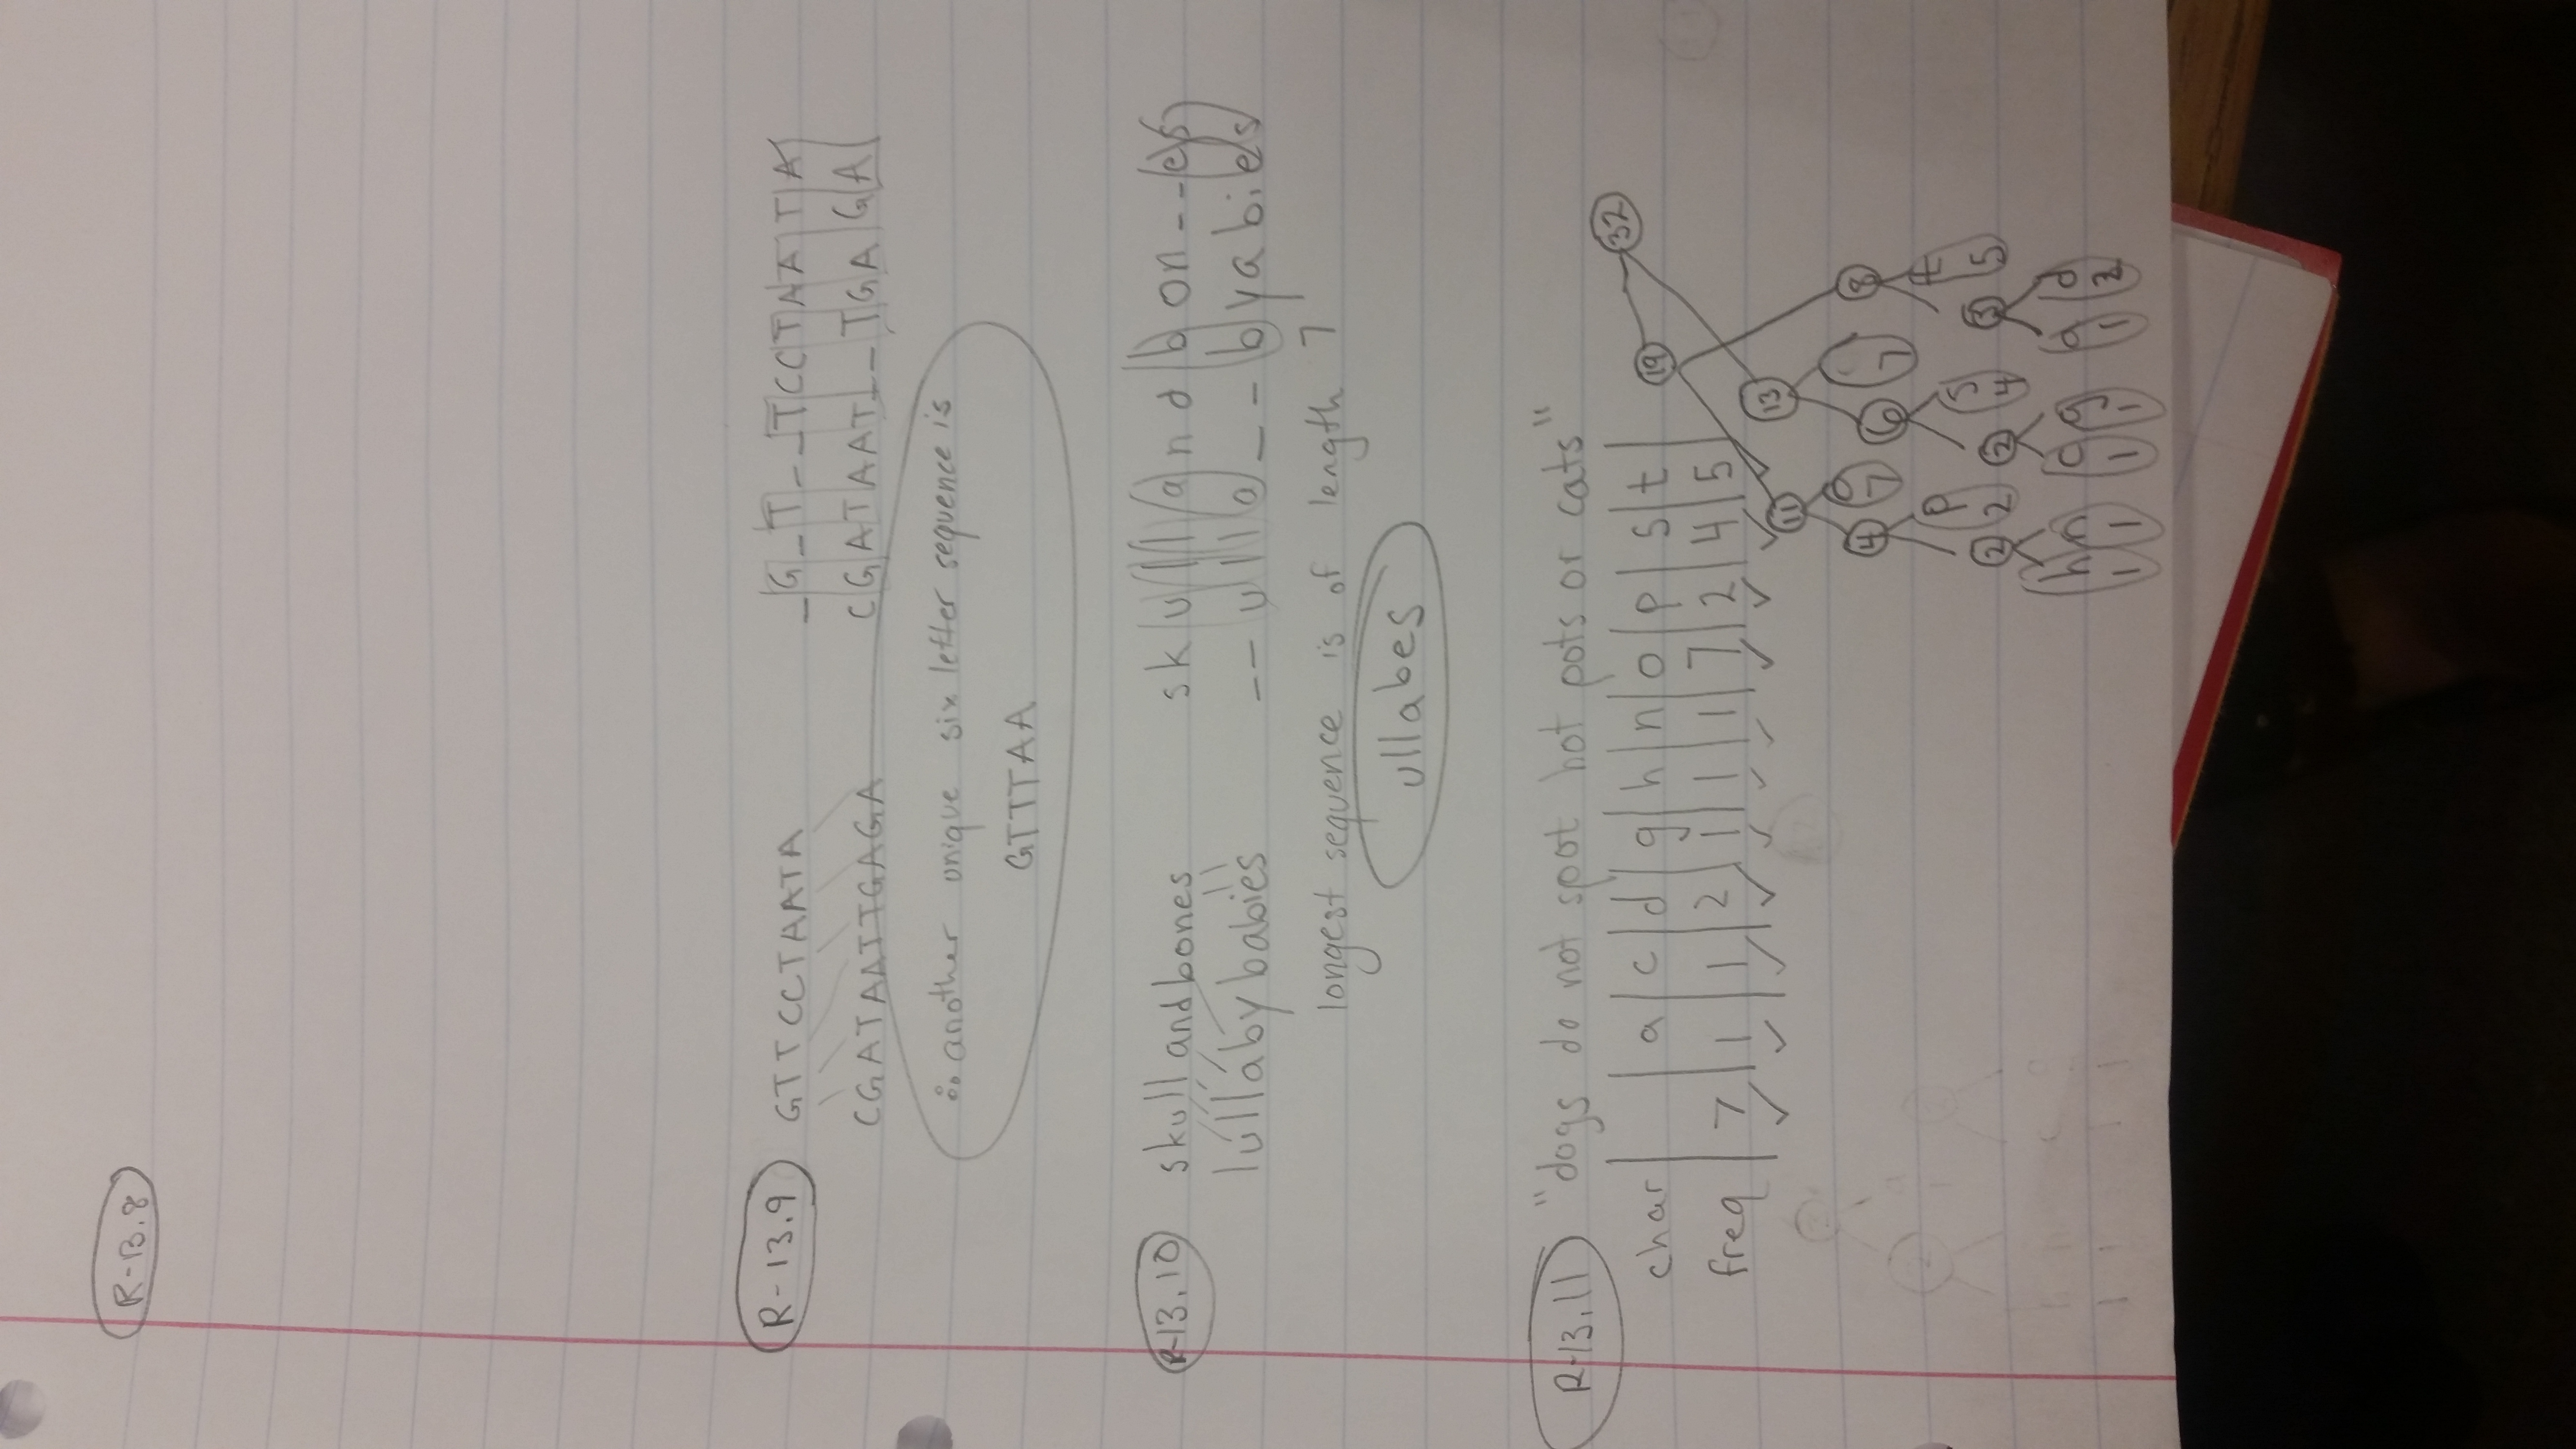 R-13.8
R-13.9 GTTCCTAATA _G_T__TCCTAATA
CGATAATTGAGA CGATAAT__TGAGA
∴ another unique six letter sequence is
GTTTAA
R-13.10 skullandbones skullandbon--es
lullabybabies --ulla--byabies
longest sequence is of length 7
ullabes
R-13.11 "dogs do not spot hot pots or cats"
char a c d g h n o p s t
freq 7 1 1 2 1 1 1 7 2 4 5
32
19
13
11
8
4 o 7 6 7
p 2 s 4 t 5
2 2 3
h 1 n 1 c 1 g 1 a 1 d 2